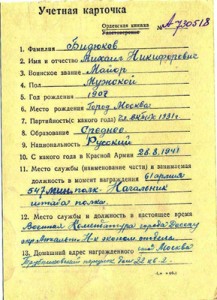 Учетная карточка
Орденская книжка
Удостоверение
№ А 730518
1. Фамилия Бидюков
2. Имя и отчество Михаил Никифорович
3. Воинское звание Майор
4. Пол Мужской
5. Год рождения 1907
6. Место рождения Город Москва
7. Партийность (с какого года) 1931 г.
8. Образование Среднее
9. Национальность Русский
10. С какого года в Красной Армии 28.8.1941
11. Место службы (наименование части) и занимаемая
должность в момент награждения 61 армия
547 мин. полк. Начальник
штаба полка
12. Место службы и должность в настоящее время
Военная Комендатура города Дессау
отдела
13. Домашний адрес награжденного Москва
22 кв. 2.